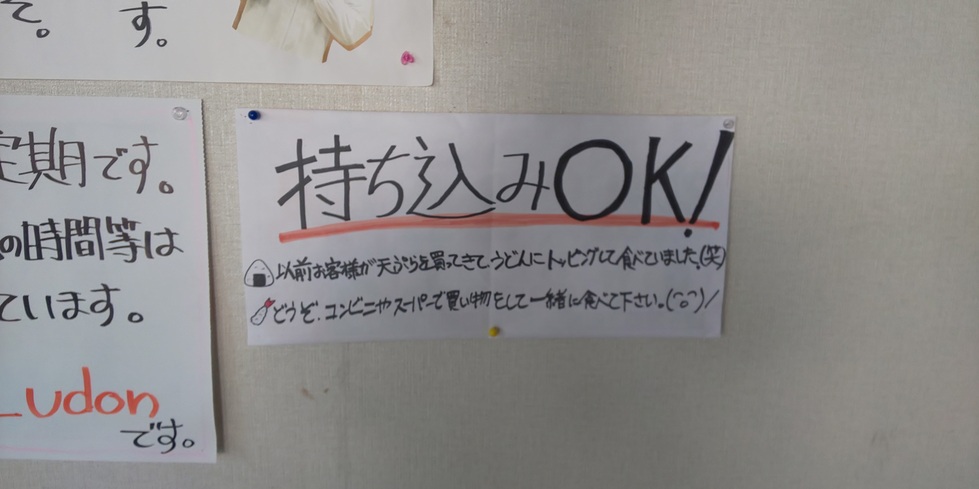 そ。
す。
定期です。
の時間等は
ています。
_udon
です。
持ち込みOK!
以前お客様が天ぷらを買ってきて、うどんにトッピングして食べていました。(笑)
どうぞ、コンビニやスーパーで買い物をして一緒に食べて下さい。(^o^)/